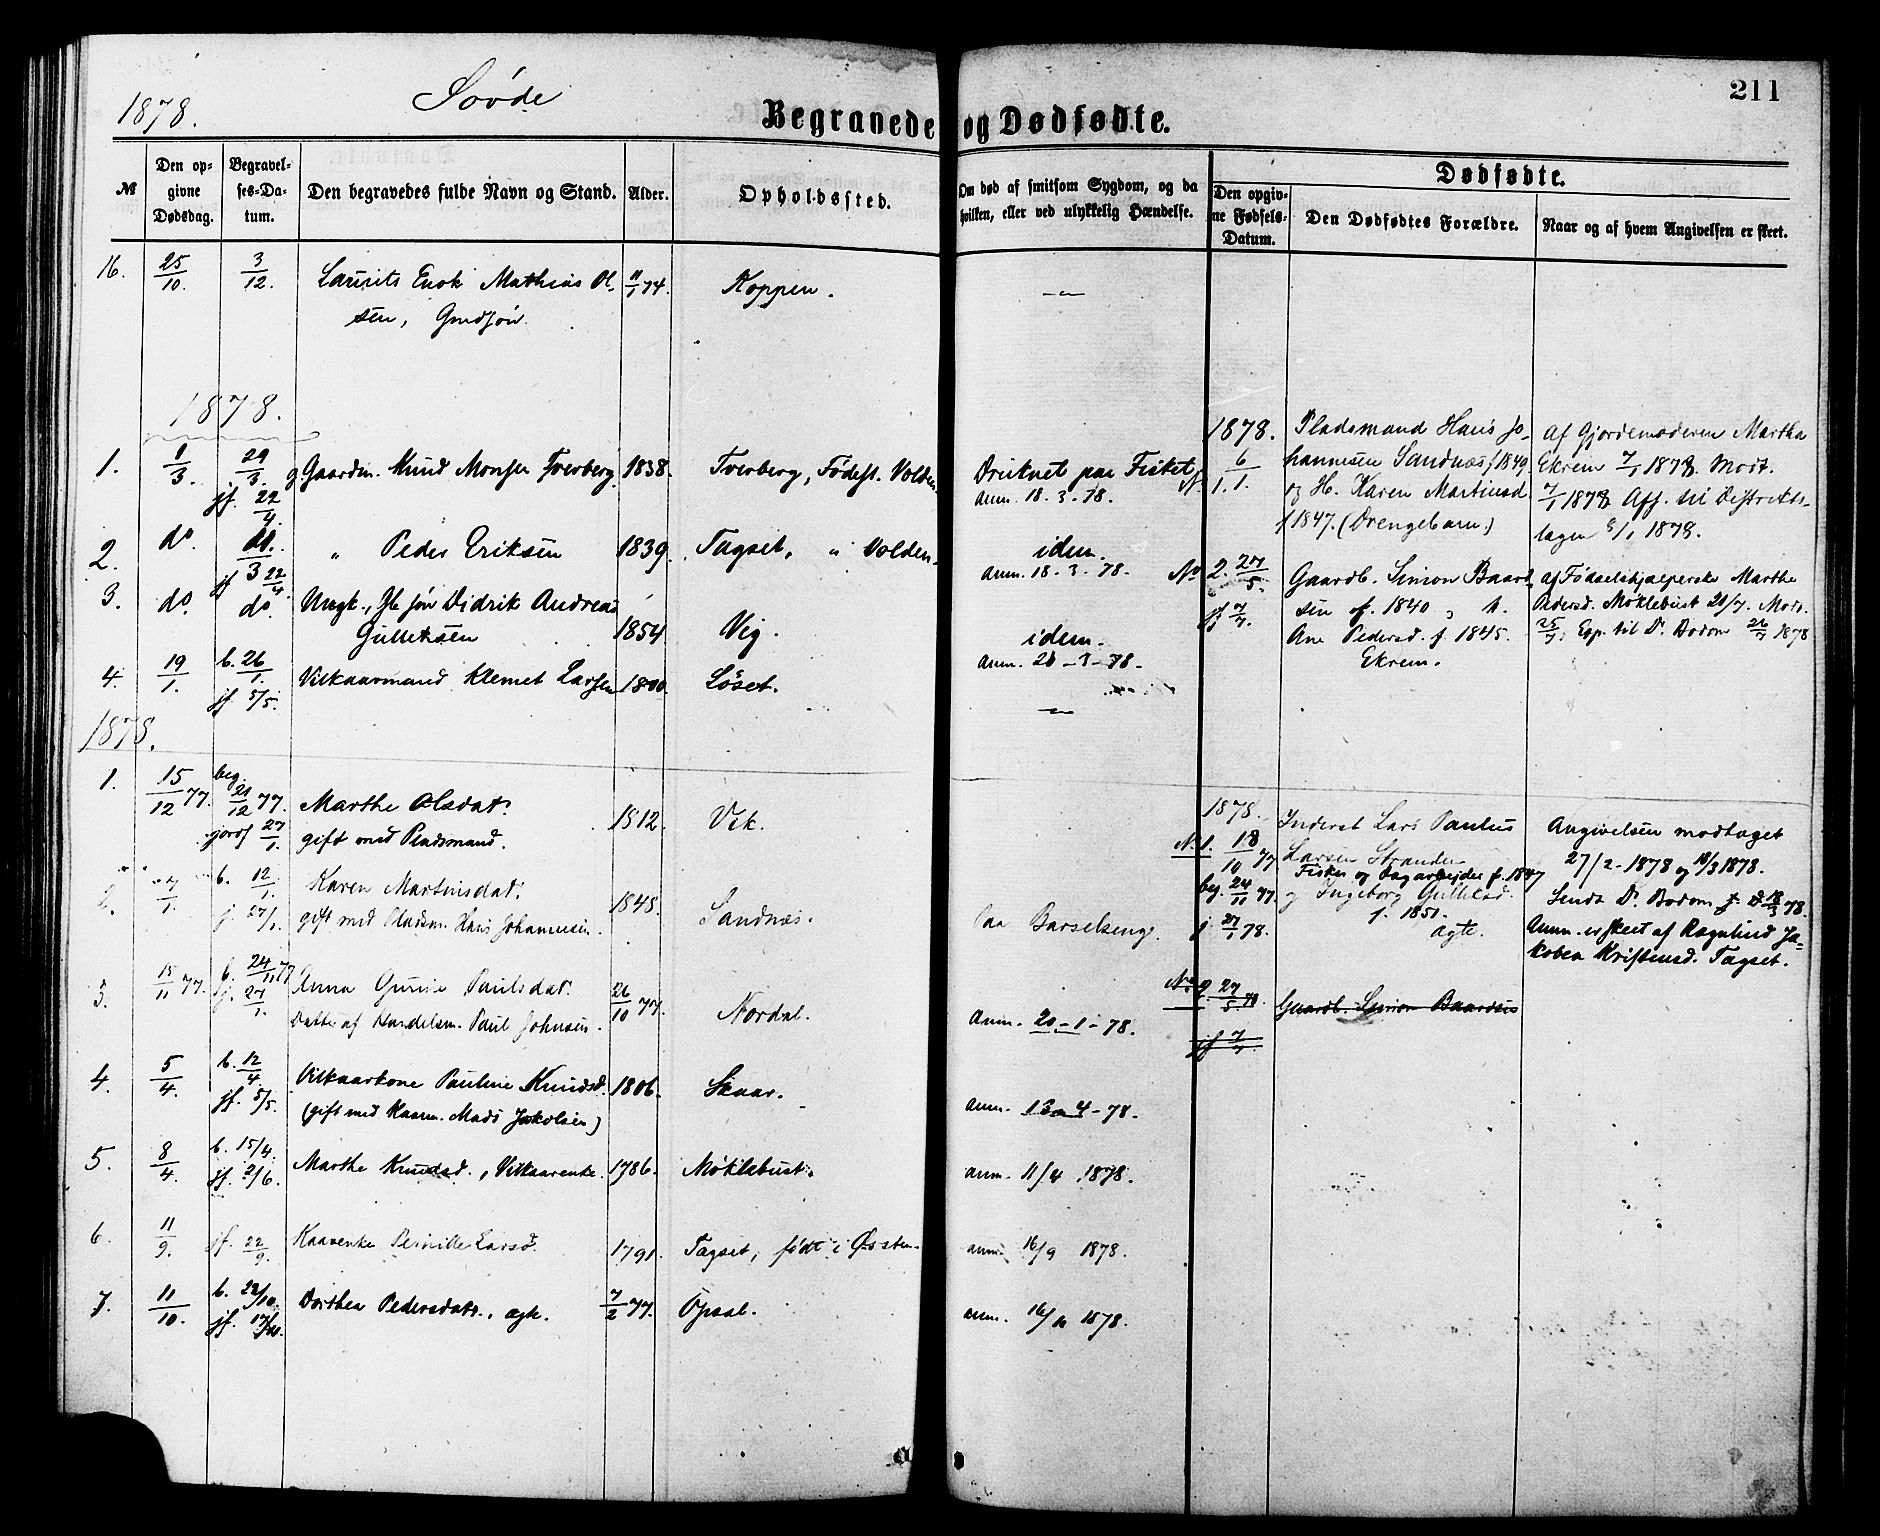 1878.
Søvde
211
Begravede og Dødfødte.
№
Den opgivne Dødsdag.
Begravelses-Datum.
Den begravedes fulde Navn og Stand.
Alder.
Opholdssted.
Om død af smitsom Sygdom, og da hvilken, eller ved ulykkelig Hændelse.
Dødfødte.
Den opgivne Fødsels-Datum.
Den Dødfødtes Forældre.
Naar og af hvem Angivelsen er skeet.
16. 25/10. 3/12. Laurits Enok Mathias Ol- 11/1 74. Koppen. -"-
sen,
1878.
1. 1/3. 29/3. Gaardm. Knud Monsen Tverberg. 1838. Tverberg, Fødest. Volden. Druknet paa Fisket.
jf. 22/4. Anm. 18.3.78.
2. do. do. " Peder Eriksen 1839. Tagset, " Volden. idem.
jf 22/4. Anm. 18-3-78.
3. do. do. Ungk., Didrik Andreas
Gulleksen 1854 Vig. idem.
Anm. 20-3-78.
4. 19/1. b. 26/1. Vilkaarmand Klemet Larsen 1800 Løset. -"-
jf 5/5.
1878.
6/1.
Pladsmand Hans Jo-
hannesen Sandnæs f 1849
og H. Karen Martinsd.
f 1847. (Drengebarn.)
Af Gjordemoderen Martha
Ekrem 7/1 1878. Modt.
7/1 1878 Aff. til Distrikts-
lægen 8/1 1878.
No 2. 27/5.
jf 7/7.
Gaardb. Simon Baard-
sen f. 1840 h.
Ane Pedersd. f. 1845.
Ekrem.
af Fødselshjælperske Marthe
Pedersd. Møklebust 20/7. Modt.
25/7. Exp. til Dr. Bodom 26/7 1878
1878.
1. 15/12 77. beg. 21/12 77. Marthe Olsdat. 1812. Vik.
jordf 27/1. gift med Pladsmand.
2. 7/1. b. 12/1. Karen Martinsdat. 1848. Sandnæs. Paa Barselseng.
j. 27/1. gift med Pladsm. Hans Johannesen.
3. 15/11 77. b. 24/11 77 Anna Gurine Paulsdat. 26/10 77. Nordal. Anm. 20-1-78.
j. 27/1. Datter af Handelsm. Paul Johnsen.
4. 5/4. b. 12/4. Vilkaarkone Pauline Knudsd. 1806. Skaar. Anm. 13-4-78.
jf. 5/5. (gift med Kaarm. Mads Jakobsen)
5. 8/4. b. 15/4. Marthe Knudsd., Vilkaarenke. 1786. Møklebust. anm. 11/4 1878.
jf. 2/6.
6. 11/9. jf. 22/9. Kaarenke Pernille Larsd. 1791. Tagset, født i Ørsten. anm. 16/9 1878.
7. 11/10. b. 22/10. Dorthea Pedersdatr., ægte. 7/2 77. Opsal. anm. 16/10 1878.
1878.
No 1. 18/10 77
beg. 24/11 77.
j 27/1 78.
Inderst Lars Paulus
Larsen Stranden
Fisker og Dagarbejder f. 1847
og Ingeborg Gullikad.
f. 1851.
Ægte.
Angivelsen modtaget
27/2-1878 og 18/3 1878.
Sendt Dr. Bodom d. 18/3 78.
Anm. er skeet af Ragnhild Ja-
kobea Kristensd. Tagset.
No 2 27/5 78.
jf 7/7.
Gaardb. Simon Baardsen